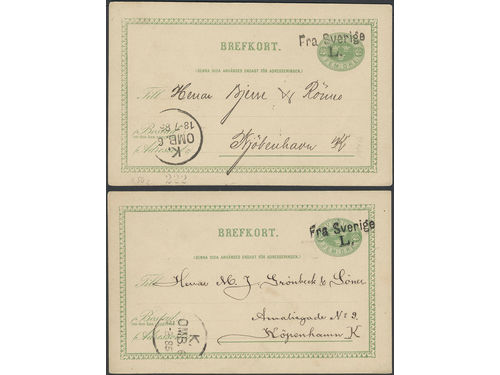 BREFKORT.
Fra Sverige
L.
(DENNA SIDA ANVÄNDES ENDAST FÖR ADRESSERINGEN.)
Till Herrar Bjerre & Rönne
Kjöbenhavn K
K.
OMB. 6
18-7 85
222
BREFKORT.
Fra Sverige
L.
(DENNA SIDA ANVÄNDES ENDAST FÖR ADRESSERINGEN.)
Till Herrar M. J. Grönbeck & Söner
Amaliegade No 2.
Köpenhamn K
K.
OMB. 6
85